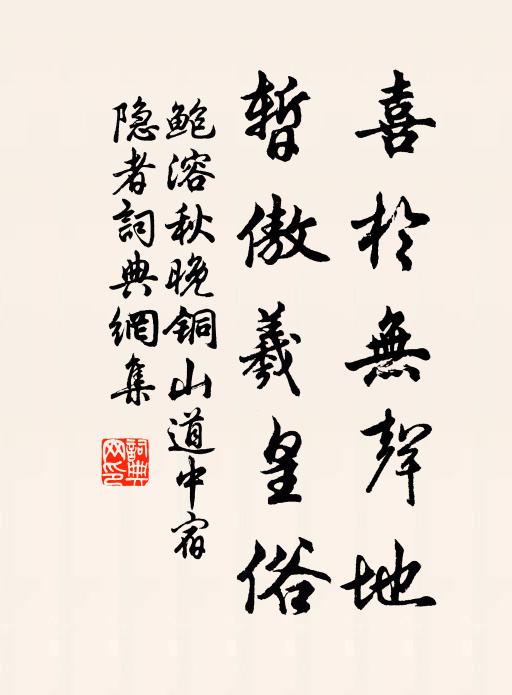 喜於無聲地
暫傲羲皇俗
鮑溶秋晚銅山道中宿
隐者詞典網集
詞典
网印